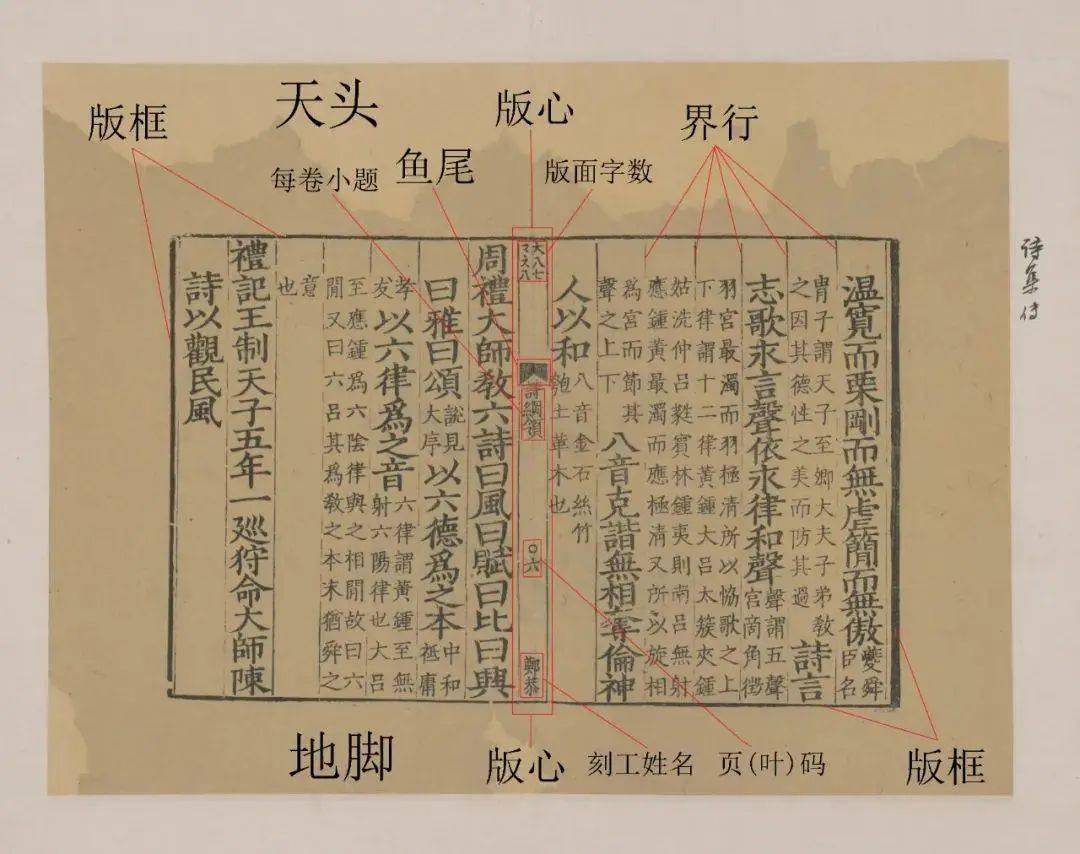 天头
版心
界行
版框
鱼尾
版面字数
每卷小题
詩集传
温寬而栗剛而無虐簡而無傲夔舜臣名
胄子謂天子至卿大夫子弟教
之因其德性之美而防其過
詩言
志歌永言聲依永律和聲聲謂五聲宮商角徵
羽宮最濁而羽極清所以恊歌之上
下律謂十二律黃鍾大呂太簇夾鍾
姑洗仲呂蕤賓林鍾夷則南呂無射
應鍾黃最濁而應極清又所以旋相
為宮而節其聲之上下八音克諧無相奪倫神
人以和八音金石絲竹匏土革木也
大八七
詩綱領
〇六
鄭恭
周禮大師教六詩曰風曰賦曰比曰興
曰雅曰頌說見大序以六德爲之本中和祗庸
孝友以六律爲之音六律謂黃鍾至無射六陽律也大呂
至應鍾爲六陰律與之相間故曰六
間又曰六呂其爲教之本末猶舜之
意也
禮記王制天子五年一廵狩命大師陳
詩以觀民風
地脚
版心
刻工姓名
页(叶)码
版框